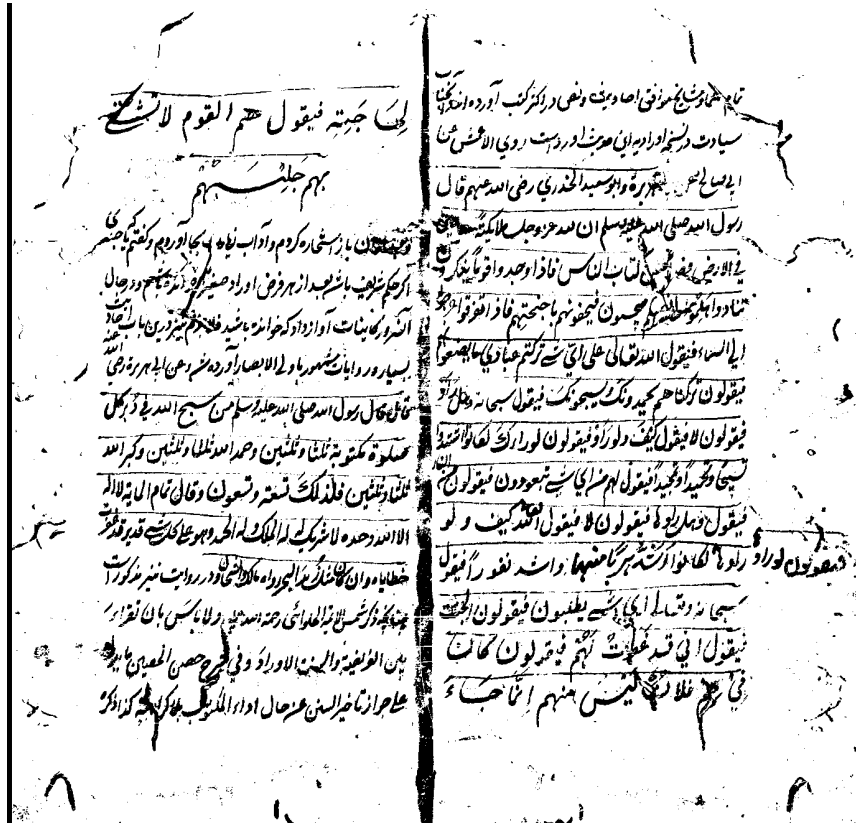 تمام علما و مشایخ موافق احادیث و نص در اکثر کتب آورده اند
سیادت در نسخه اورادیه این حدیث آورده است روی الاعمش عن
ابی صالح عن هریرة و ابو سعید الخدری رضی الله عنهم قال
رسول الله صلی الله علیه وسلم ان لله عز و جل ملائکة
فی الارض الناس فاذا وجدوا قوما یذکرون
تنادوا فیحفونهم باجنحتهم فاذا تفرقوا
الی السماء فیقول الله تعالی علی ای شی ترکتم عبادی یصنعون
فیقولون ترکناهم یحمدونک و یسبحونک فیقول سبحانه و هل راو
فیقولون لا فیقول کیف و لو راو فیقولون لو راوک لکانوا اشد
تسبیحا و تحمیدا و تمجیدا فیقول لهم من ای شی یتعوذون فیقولون من النار
فیقول و هل راوها فیقولون لا فیقول الله کیف و لو
فیقولون لو راو راوها لکانوا اشد هربا منها و اشد نفورا فیقول
سبحانه و تعالی ای شی یطلبون فیقولون الجنة
فیقول انی قد غفرت لهم فیقولون کان
فیهم فلان لیس منهم انما جاء
لحاجته فیقول هم القوم لا یشقی
بهم جلیسهم
باز استخاره کردم و آداب زیارت بجا آوردم و گفتم یا جدی
اگر حکم شریف باشد بعد از هر فرض اوراد و در حال
آن سرور کاینات آواز داد که خوانده باشد درین باب احادیث
بسیار و روایات مشهور با ولی الابصار آورده شد و عن ابی هریرة رضی الله عنه
قال قال رسول الله صلی الله علیه وسلم من سبح الله فی دبر کل
صلوة مکتوبة ثلثا و ثلثین و حمد الله ثلثا و ثلثین و کبر الله
ثلثا و ثلثین فذلک تسعة و تسعون و قال تمام المایة لا اله
الا الله وحده لا شریک له له الملک و له الحمد و هو علی کل شی قدیر غفرت
خطایاه و ان کان مثل زبد البحر رواه مالک و در روایت نیز مذکور است
چنانکه ذکر شمس الایمة الحلوائی رحمة الله علیه و لا باس بان تقراء
بین الفریضة و السنة الاوراد و فی شرح حصن الحصین
علی جواز تاخیر السنن عن حال اداء المکتوبة کذا ذکره